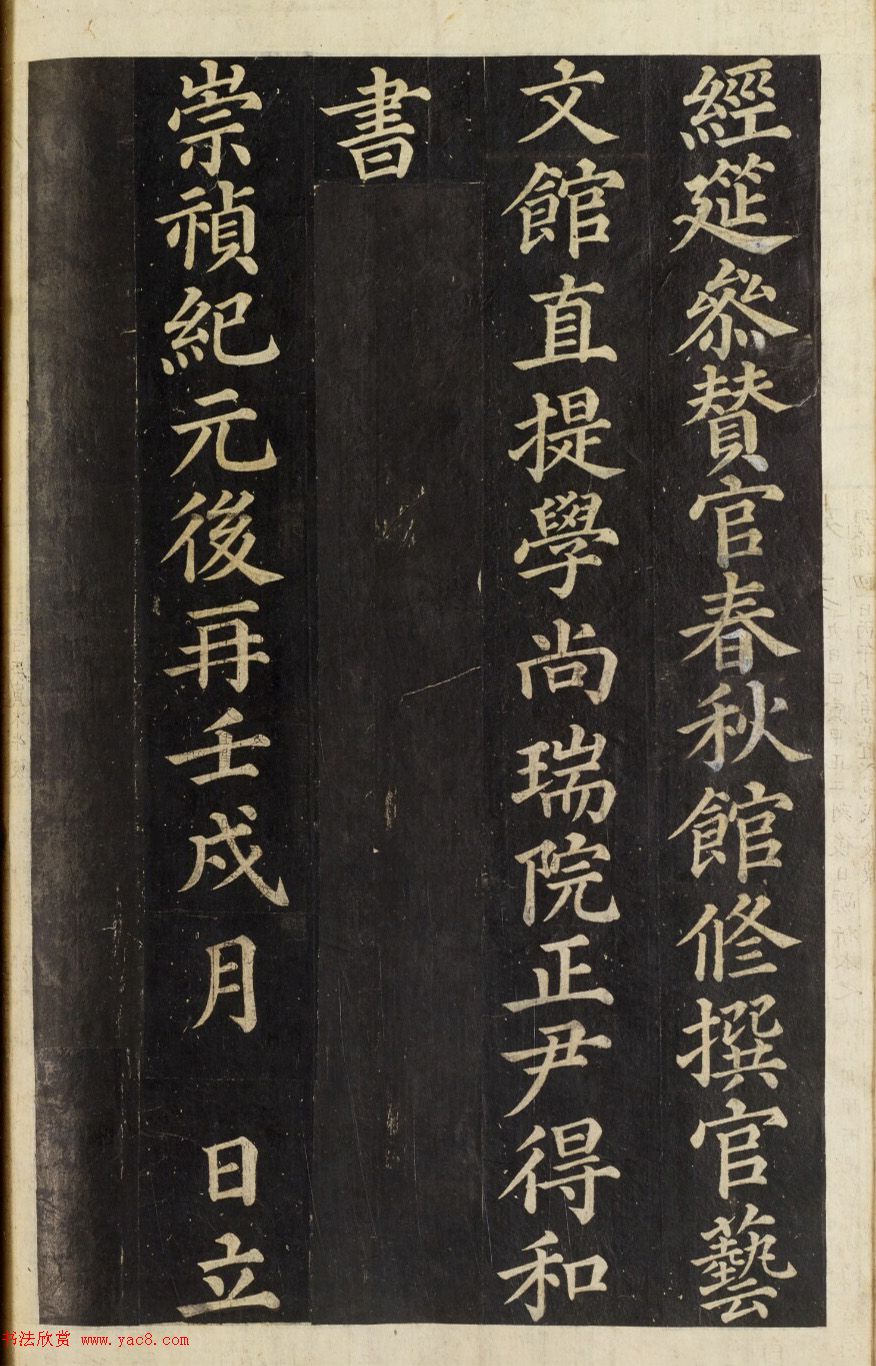 經筵參贊官春秋館修撰官藝
文館直提學尚瑞院正尹得和
書
崇禎紀元後再壬戌月 日立
书法欣赏 www.yac8.com